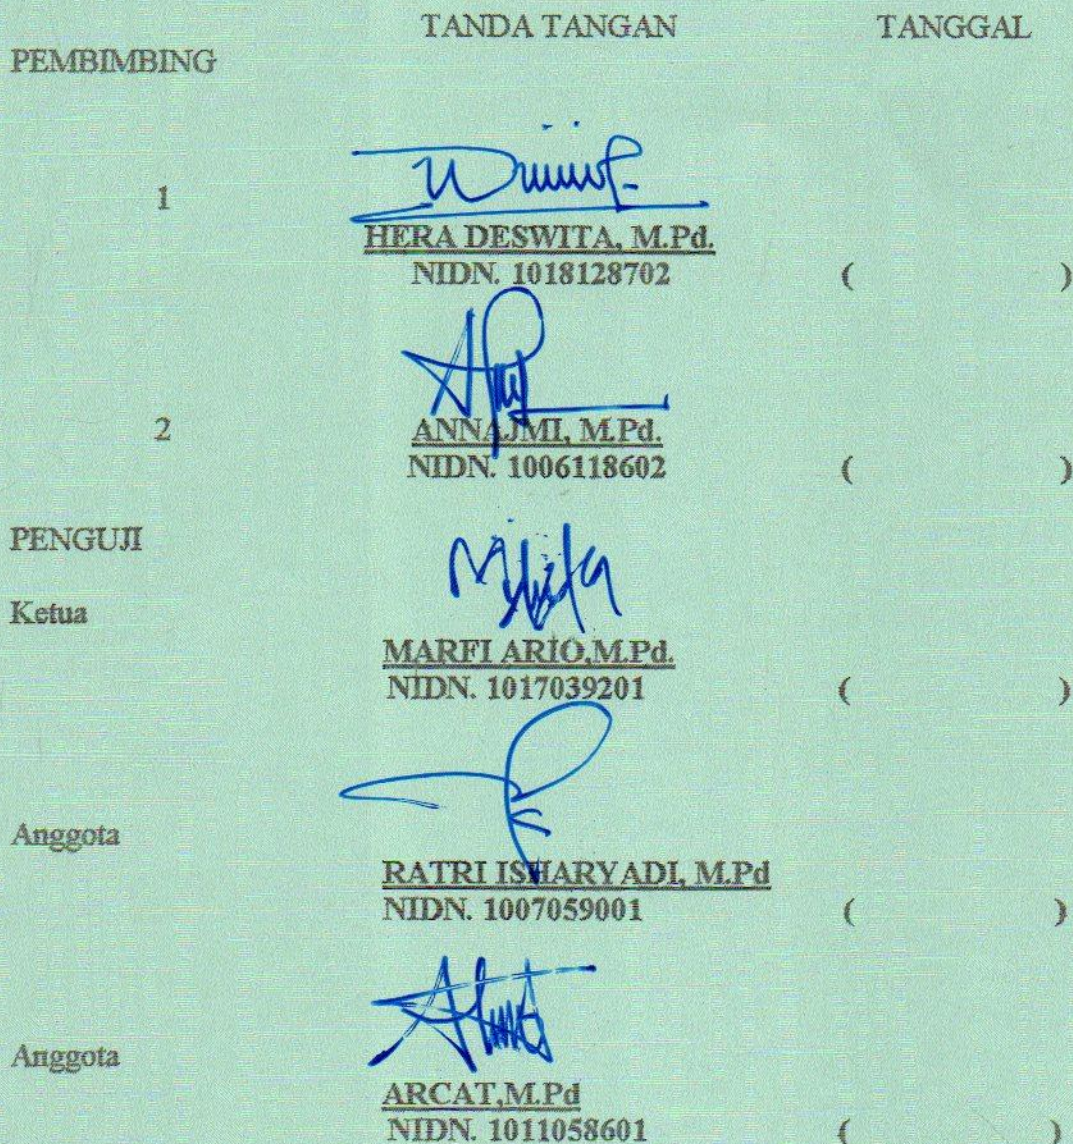 TANDA TANGAN TANGGAL
PEMBIMBING
1
HERA DESWITA, M.Pd.
NIDN. 1018128702 ( )
2
ANNAJMI, M.Pd.
NIDN. 1006118602 ( )
PENGUJI
Ketua
MARFI ARIO,M.Pd.
NIDN. 1017039201 ( )
Anggota
RATRI ISHARYADI, M.Pd
NIDN. 1007059001 ( )
Anggota
ARCAT,M.Pd
NIDN. 1011058601 ( )